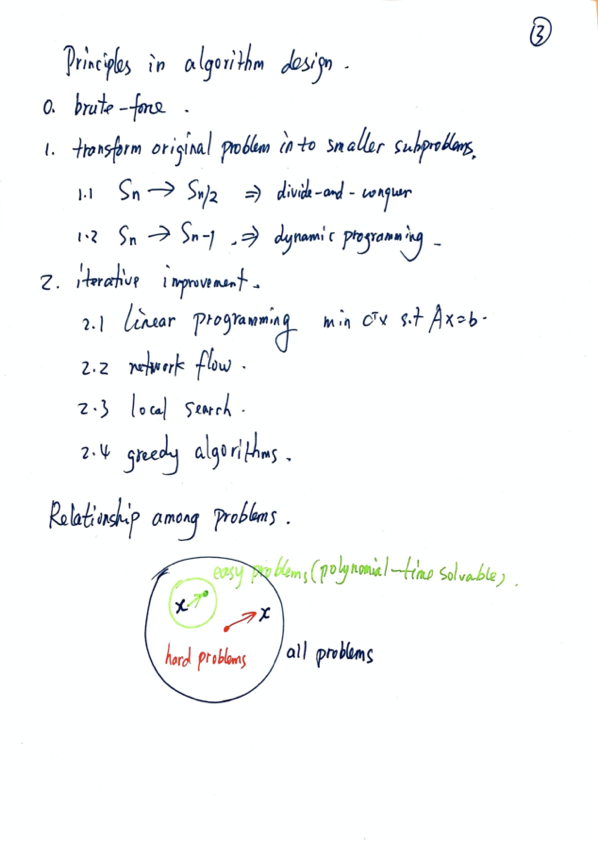 ③
Principles in algorithm design.
0. brute-force.
1. transform original problem in to smaller subproblems.
1.1 Sn → Sn/2 ⇒ divide-and-conquer
1.2 Sn → Sn-1 . ⇒ dynamic programming -
2. iterative improvement.
2.1 linear programming min cᵀx s.t Ax=b.
2.2 network flow.
2.3 local search.
2.4 greedy algorithms.
Relationship among problems.
easy problems (polynomial-time solvable).
x
x
hard problems
all problems